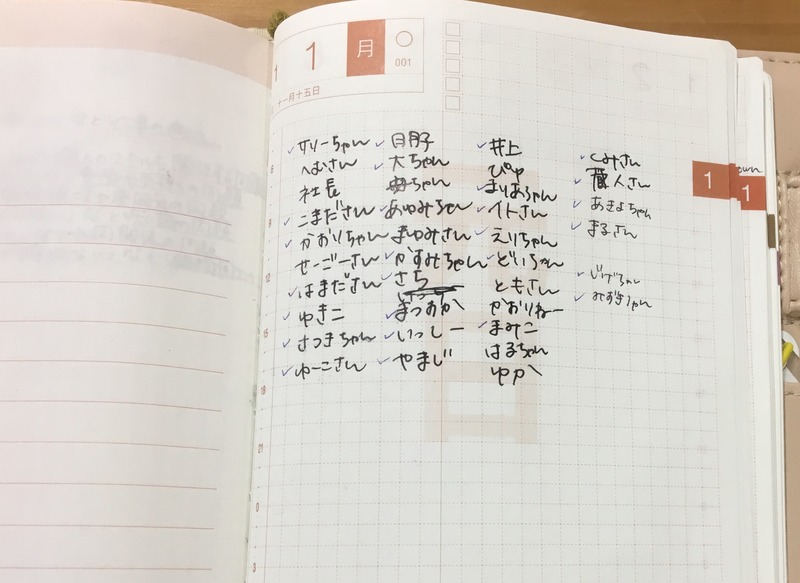 1 1 月
001
十一月十五日
✓サリーちゃん
へむさん
社長
✓こまださん
✓かおりちゃん
せーごーさん
✓はまださん
✓ゆきこ
✓さつきちゃん
✓ゆーこさん
✓日月子
✓大ちゃん
ちゃん
✓あゆみちゃん
✓まゆみさん
✓かすみちゃん
✓さち
✓まつおか
✓いっしー
✓やまじ
✓井上
ぴゅ
✓まりあちゃん
✓イトさん
✓えりちゃん
✓どいちゃん
ともさん
かおりねー
✓まみこ
はるちゃん
ゆか
✓くみさん
✓蔵人さん
✓あきよちゃん
✓まるさん
✓しげちゃん
✓みずきちゃん
9
12
15
18
21
0
3
1
1